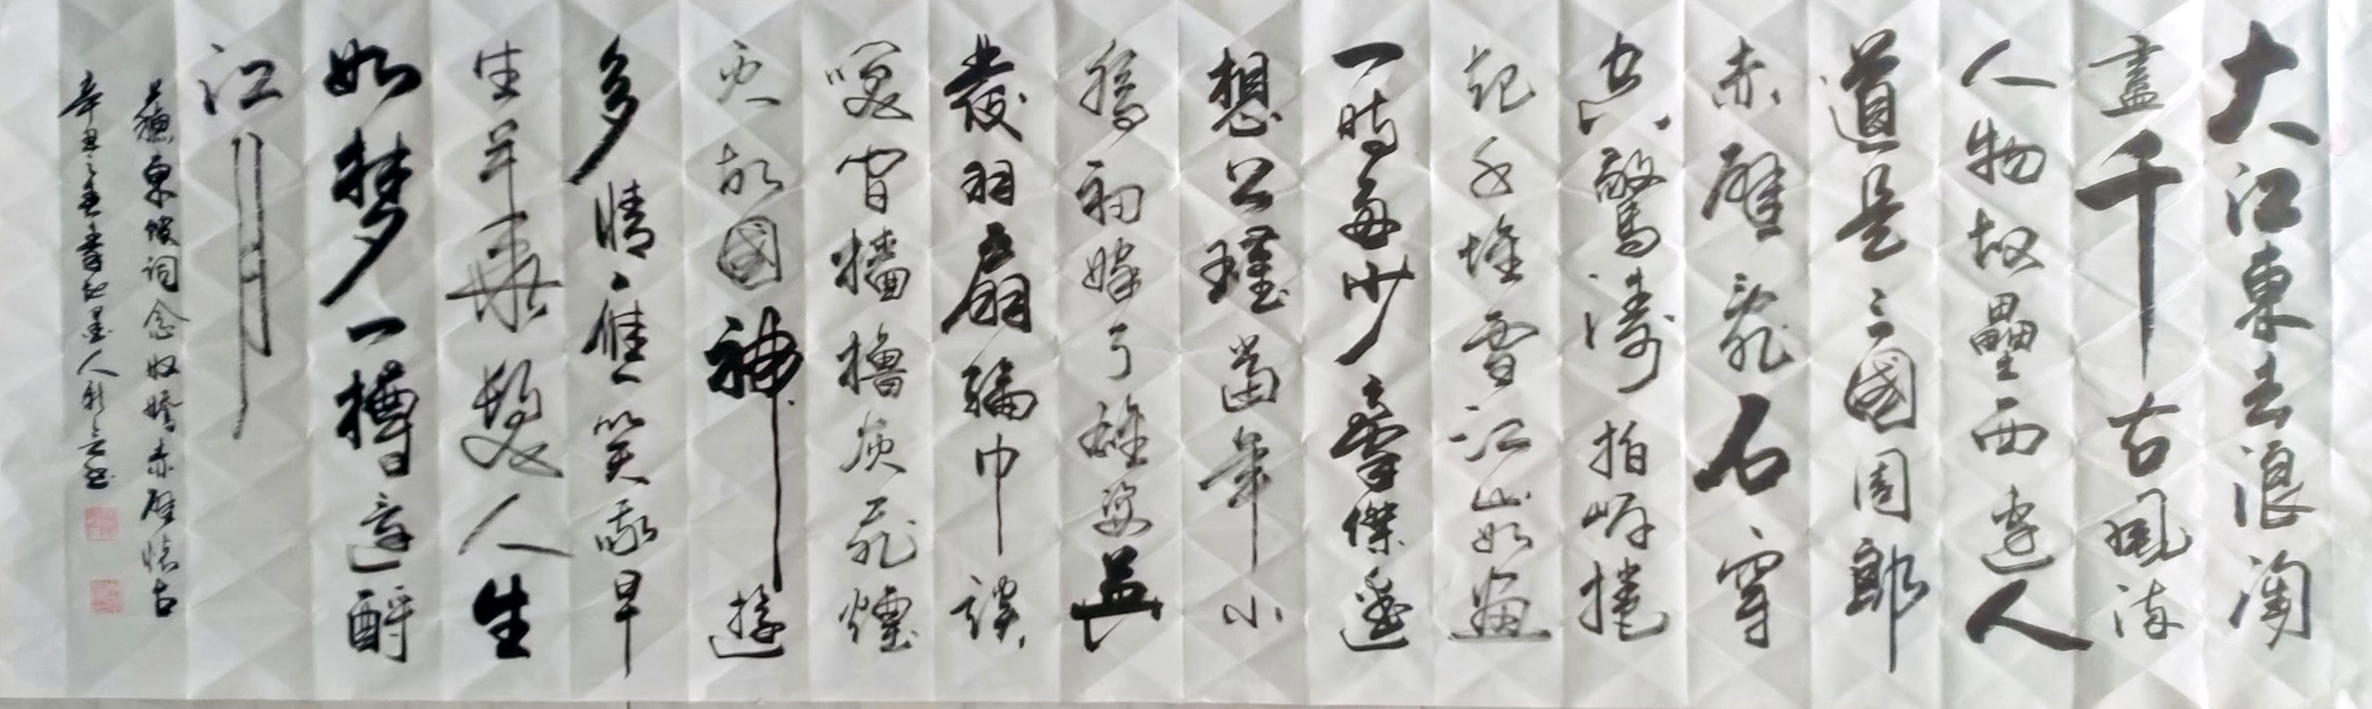 大江東去浪淘
盡千古風流
人物故壘西邊人
道是三國周郎
赤壁亂石穿
空驚濤拍岸捲
起千堆雪江山如畫
一時多少豪傑遙
想公瑾當年小
喬初嫁了雄姿英
發羽扇綸巾談
笑間檣櫓灰飛煙
滅故國神遊
多情應笑我早
生華髮人生
如夢一樽還酹
江月
蘇東坡詞念奴嬌赤壁懷古
辛丑之春書於墨人